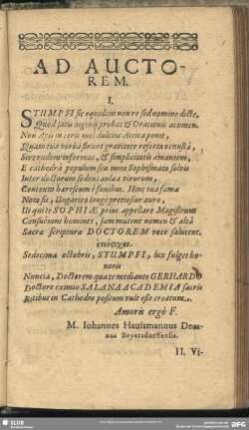 AD AUCTO-
REM.
I.
STUMPFI sic equidem non re sed nomine dicte,
Quod satis ingenii probat & Orationis acumen.
Non Apis in ceris mel dulcius Attica ponit,
Quam tua verba fluunt gravitate referta venustâ,
Sive rudem informas, & simplicitatis amantem,
E cathedrâ populum seu
Inter doctorum sedens
Contextu haresium è funibus. Hinc tua fama
Nota sit, Ungarico longè pretiosior auro,
Ut qui te SOPHIÆ prius appellare Magistrum
Consuerant homines, jam mutent nomen & altâ
Sacra scriptura DOCTOREM voce salutent.
Sedecima octobris, STUMPFI, lux fulget honoris
Nuncia, Doctorem quâ te mediante GERHARDO
Doctore eximio SALANA ACADEMIA sacris
Ritibus in Cathedra positum vult esse creatum.
Amoris ergò F.
M. Iohannes Hausmannus
II. Vi-
SLUB